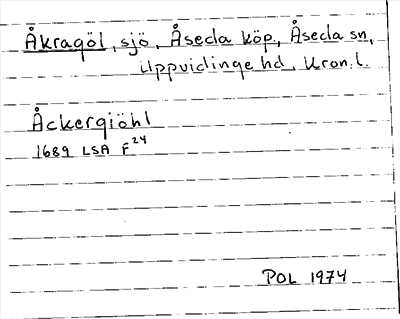 Åkragöl, sjö, Åseda köp., Åseda sn,
Uppvidinge hd, Kron. l.
Åckergiöhl
1689 LSA F 24
POL 1974